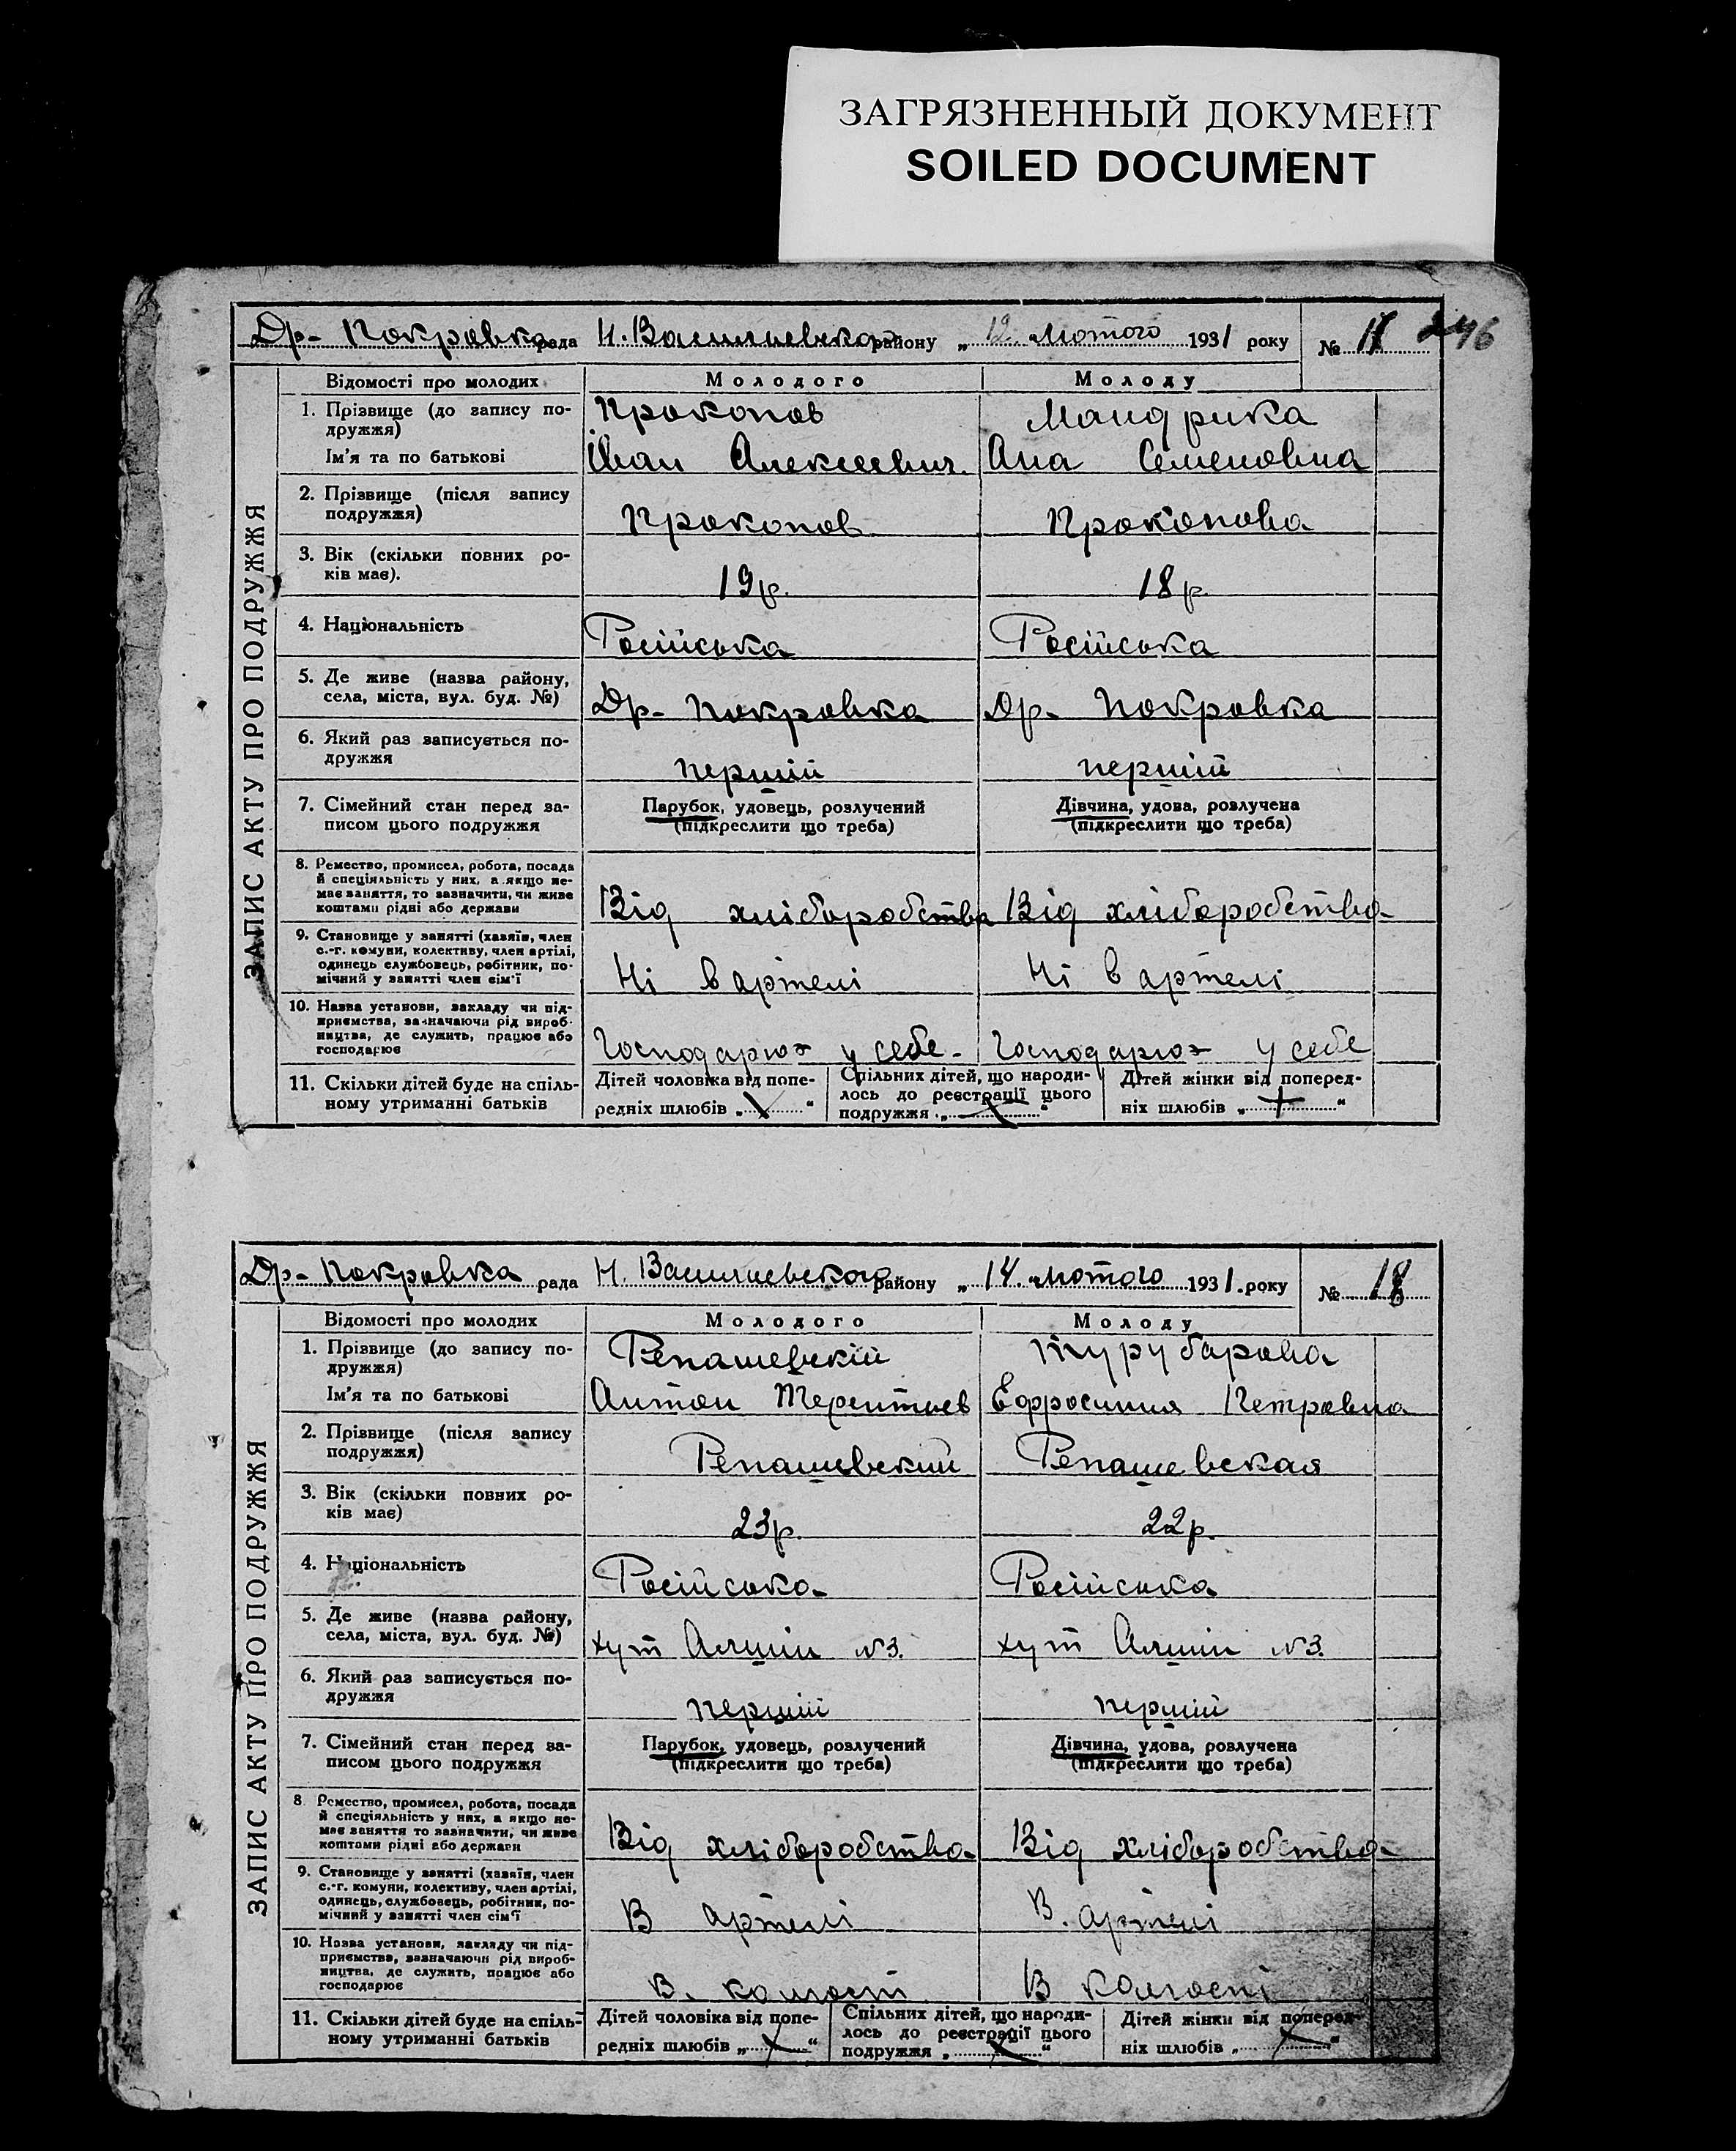 ЗАГРЯЗНЕННЫЙ ДОКУМЕНТ
SOILED DOCUMENT
246
Др- Покровка рада Н. Васильевского району „ 12. Лютого 1931 року № 17
ЗАПИС АКТУ ПРО ПОДРУЖЖЯ
Відомості про молодих Молодого Молоду
1. Прізвище (до запису по-
дружжя) Прокопов Мандрика
Ім'я та по батькові Іван Алексеевич. Ана Семеновна
2. Прізвище (після запису
подружжя) Прокопов Прокопова
3. Вік (скільки повних ро-
ків має). 19р. 18р.
4. Національність Російська Російська
5. Де живе (назва району,
села, міста, вул. буд. №) Др- Покровка Др- Покровка
6. Який раз записується по-
дружжя першій першій
7. Сімейний стан перед за-
писом цього подружжя
Парубок, удовець, розлучений
(підкреслити що треба)
Дівчина, удова, розлучена
(підкреслити що треба)
8. Ремество, промисел, робота, посада
й спеціяльність у них, а якщо не-
має заняття, то зазначити, чи живе
коштами рідні або держави Від хліборобства Від хліборобства
9. Становище у занятті (хазяїн, член
с.-г. комуни, колективу, член артілі,
одинець службовець, робітник, по-
мічний у занятті член сім'ї Ні в артелі Ні в артелі
10. Назва установи, закладу чи під-
приємства, зазначаючи рід вироб-
ництва, де служить, працює або
господарює Господарює у себе- Господарює у себе
11. Скільки дітей буде на спіль-
ному утриманні батьків
Дітей чоловіка від попе-
редніх шлюбів „ “
Спільних дітей, що народи-
лось до реєстрації цього
подружжя „ “
Дітей жінки від поперед-
ніх шлюбів „ “
Др- Покровка рада Н. Васильевского району „ 14. Лютого 1931. року № 18
ЗАПИС АКТУ ПРО ПОДРУЖЖЯ
Відомості про молодих Молодого Молоду
1. Прізвище (до запису по-
дружжя) Репашевскій Турубарова
Ім'я та по батькові Антон Терентьев Ефросиния Петровна
2. Прізвище (після запису
подружжя) Репашевский Репашевская
3. Вік (скільки повних ро-
ків має) 23р. 22р.
4. Національність Російська Російська
5. Де живе (назва району,
села, міста, вул. буд. №) хут N3. хут N3.
6. Який раз записується по-
дружжя першій першій
7. Сімейний стан перед за-
писом цього подружжя
Парубок, удовець, розлучений
(підкреслити що треба)
Дівчина, удова, розлучена
(підкреслити що треба)
8. Ремество, промисел, робота, посада
й спеціяльність у них, а якщо не-
має заняття то зазначити, чи живе
коштами рідні або держави Від хліборобства Від хліборобства
9. Становище у занятті (хазяїн, член
с.-г. комуни, колективу, член артілі,
одинець, службовець, робітник, по-
мічний у занятті член сім'ї В артелі В. артелі
10. Назва установи, закладу чи під-
приємства, зазначаючи рід вироб-
ництва, де служить, працює або
господарює В. В колгоспі
11. Скільки дітей буде на спіль-
ному утриманні батьків
Дітей чоловіка від попе-
редніх шлюбів „ “
Спільних дітей, що народи-
лось до реєстрації цього
подружжя „ “
Дітей жінки від поперед-
ніх шлюбів „ “